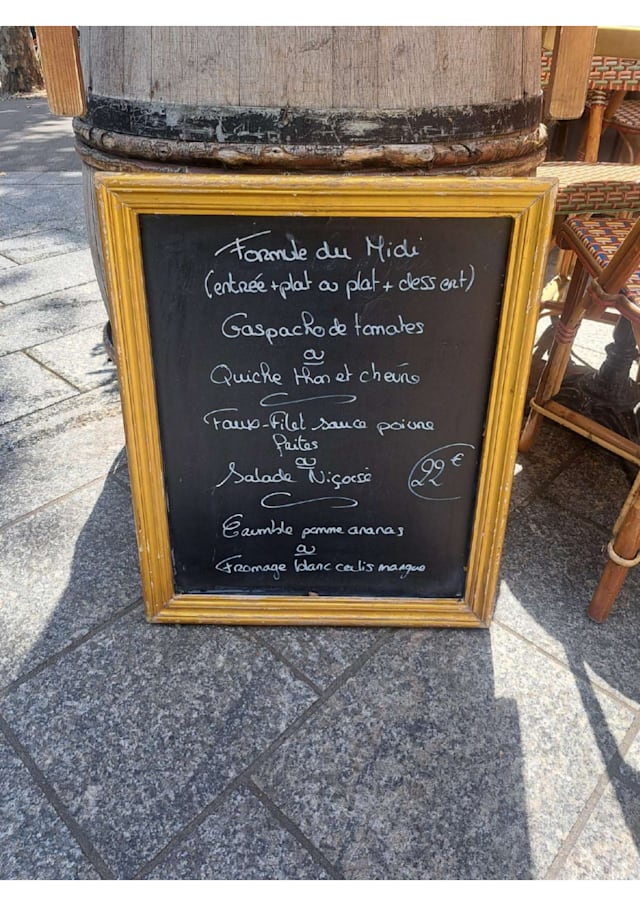 Formule du Midi
(entrée + plat ou plat + dessert)
Gaspacho de tomates
ou
Quiche thon et chèvre
Faux-Filet sauce poivre
frites
ou
Salade Niçoise
22 €
Crumble pomme ananas
ou
Fromage blanc coulis mangue